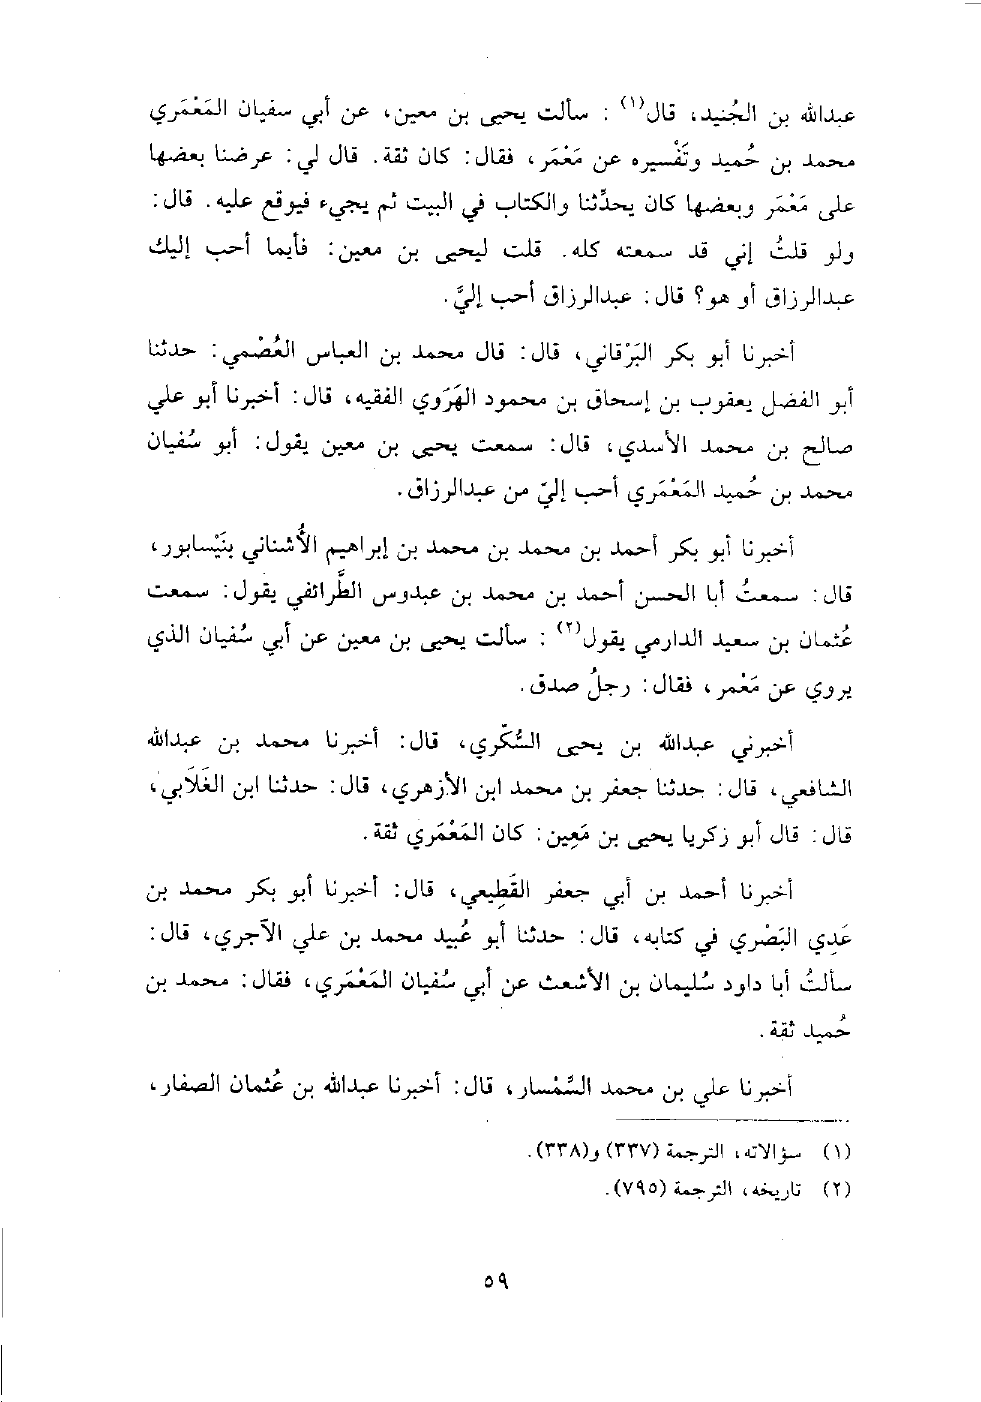 عبدالله بن الجُنيد، قال(١) : سألت يحيى بن معين، عن أبي سفيان المَعْمَري
محمد بن حُميد وتَفْسيره عن مَعْمَر، فقال: كان ثقة. قال لي: عرضنا بعضها
على مَعْمَر وبعضها كان يحدِّثنا والكتاب في البيت ثم يجيء فيوقع عليه. قال:
ولو قلتُ إني قد سمعته كله. قلت ليحيى بن معين: فأيما أحب إليك
عبدالرزاق أو هو؟ قال: عبدالرزاق أحب إليَّ.
أخبرنا أبو بكر البَرْقاني، قال: قال محمد بن العباس العُصْمي: حدثنا
أبو الفضل يعقوب بن إسحاق بن محمود الهَرَوي الفقيه، قال: أخبرنا أبو علي
صالح بن محمد الأسدي، قال: سمعت يحيى بن معين يقول: أبو سُفيان
محمد بن حُميد المَعْمَري أحب إليّ من عبدالرزاق.
أخبرنا أبو بكر أحمد بن محمد بن محمد بن إبراهيم الأُشناني بنَيْسابور،
قال: سمعتُ أبا الحسن أحمد بن محمد بن عبدوس الطَّرائفي يقول: سمعت
عُثمان بن سعيد الدارمي يقول(٢) : سألت يحيى بن معين عن أبي سُفيان الذي
يروي عن مَعْمر، فقال: رجلُ صدق.
أخبرني عبدالله بن يحيى السُّكّري، قال: أخبرنا محمد بن عبدالله
الشافعي، قال: حدثنا جعفر بن محمد ابن الأزهري، قال: حدثنا ابن الغَلَابي،
قال: قال أبو زكريا يحيى بن مَعِين: كان المَعْمَري ثقة.
أخبرنا أحمد بن أبي جعفر القَطِيعي، قال: أخبرنا أبو بكر محمد بن
عَدِي البَصْري في كتابه، قال: حدثنا أبو عُبيد محمد بن علي الآجري، قال:
سألتُ أبا داود سُليمان بن الأشعث عن أبي سُفيان المَعْمَري، فقال: محمد بن
حُميد ثقة.
أخبرنا علي بن محمد السِّمْسار، قال: أخبرنا عبدالله بن عُثمان الصفار،
(١) سؤالاته، الترجمة (٣٣٧) و(٣٣٨).
(٢) تاريخه، الترجمة (٧٩٥).
٥٩